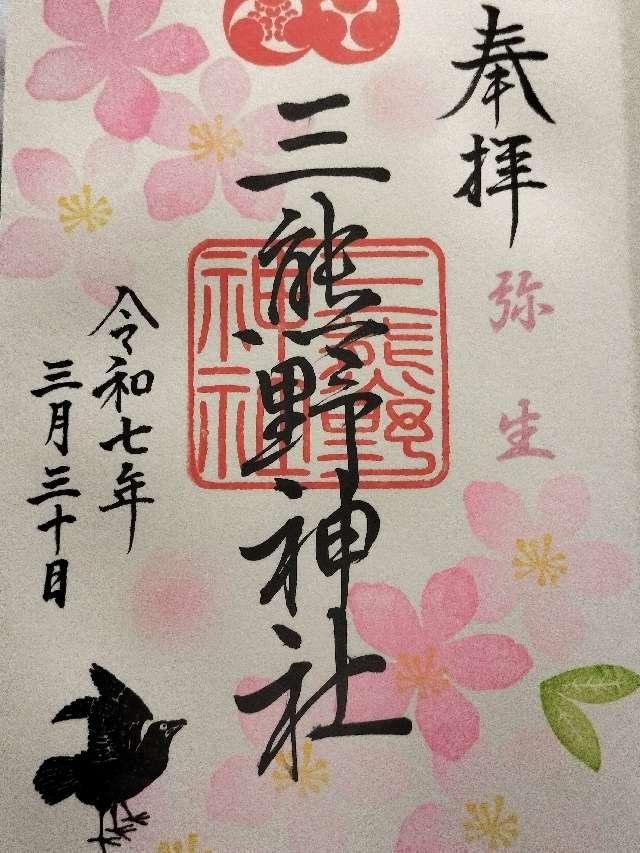 奉拝
弥生
三熊野神社
三熊野
神社
令和七年
三月三十日